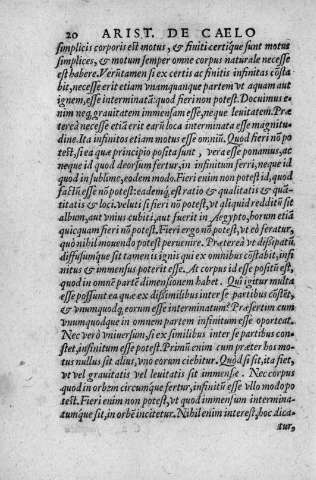 20 ARIST. DE CAELO
simplicis corporis est motus, & finiti certiq́ue sunt motus
simplices, & motum semper omne corpus naturale necesse
est habere. Verũtamen si ex certis ac finitis infinitas cõsta
bit, necesse erit etiam vnamquanque partem vt aquam aut
ignem, esse interminatã: quod fieri non potest. Docuimus e-
nim neq; grauitatem immensam esse, neque leuitatem. Præ
tereà necesse etiã erit earũ loca interminata esse magnitu-
dine. Ita infinitos etiam motus esse omniũ. Quod fieri nõ po
test, si ea quæ principio posita sunt, vera esse ponamus, ac
neque id quod deorsum fertur, in infinitum ferri, neque id
quod in sublime, eodem modo. Fieri enim non potest id, quod
factũ esse nõ potest: eademq́; est ratio & qualitatis & quã-
titatis & loci. veluti si fieri nõ potest, vt aliquid redditũ sit
album, aut vnius cubiti, aut fuerit in Aegypto, horum etiã
quicquam fieri nõ potest. Fieri ergo nõ potest, vt eò feratur,
quò nihil mouendo potest peruenire. Prætereà vt dißipatũ
diffusumque sit tamen is ignis qui ex omnibus cõstabit, infi
nitus & immensus poterit esse. At corpus id esse positũ est,
quod in omnẽ partẽ dimensionem habet. Qui igitur multa
esse possunt ea quæ ex dißimilibus inter se partibus cõstẽt,
& vnumquodq; eorum esse interminatum? Præsertim cum
vnumquodque in omnem partem infinitum esse oporteat.
Nec verò vniuersum, si ex similibus inter se partibus con-
stet, infinitum esse potest. Primũ enim cum præter hos mo-
tus nullus sit alius, vno eorum ciebitur. Quod si sit, ita fiet,
vt vel grauitatis vel leuitatis sit immensæ. Nec corpus
quod in orbem circumq́ue fertur, infinitũ esse vllo modo po
test. Fieri enim non potest, vt quod immensum intermina-
tumque sit, in orbẽ incitetur. Nihil enim interest, hoc dica-
tur,